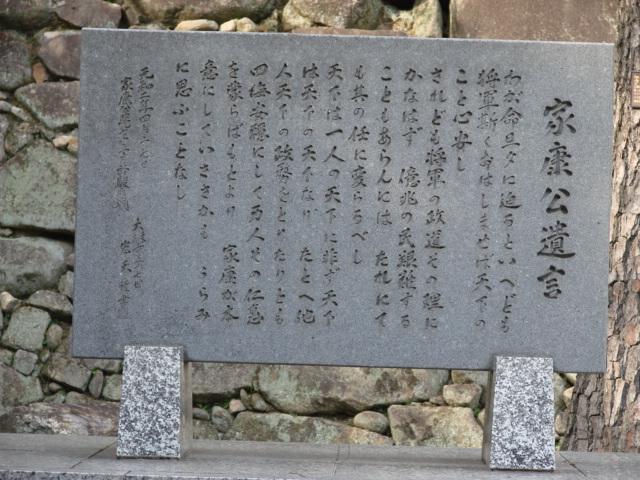 家康公遺言
わが命旦夕に迫るといへども
将軍斯く命はしませば天下の
こと心安し
されども将軍の政道その理に
かなはず 億兆の民艱難する
こともあらんには たれにて
も其の任に変らるべし
天下は一人の天下に非ず天下
は天下の天下なり たとへ他
人天下の政務をとりたりとも
四海安穏にして万人その仁恵
を蒙らばもとより 家康が本
意にしていささかも うらみ
に思ふことなし
元和二年四月
家康